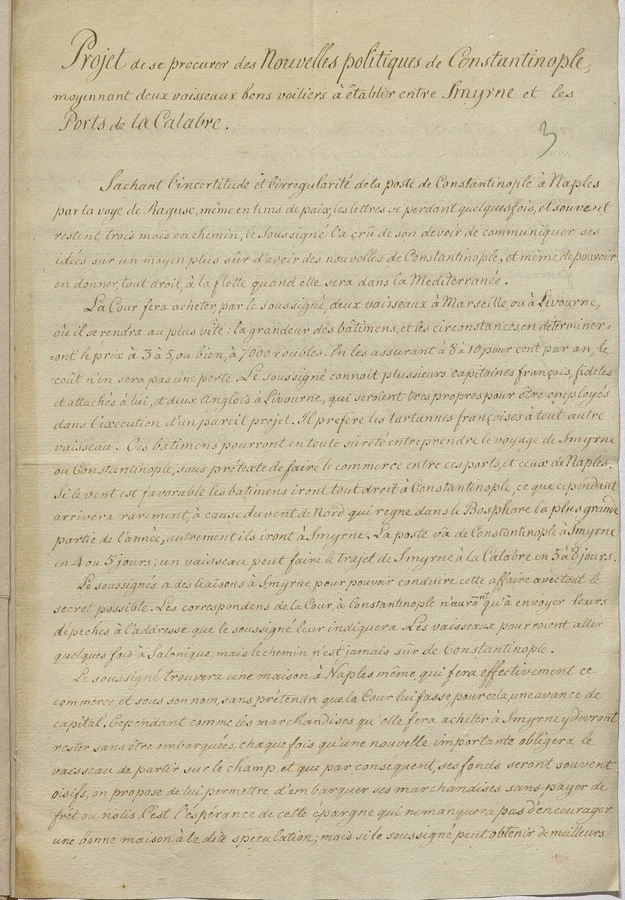 Projet de se procurer des Nouvelles politiques de Constantinople,
moyennant deux vaisseaux bons voiliers à établir entre Smyrne et les
Ports de la Calabre.
3
Sachant l'incertitude et l'irregularité de la poste de Constantinople à Naples
par la voye de Raguse, même en tems de paix, les lettres se perdant quelques fois, et souvent
restent trois mois en chemin, le soussigné l'a crû de son devoir de communiquer ses
idées sur un moyen plus sûr d'avoir des nouvelles de Constantinople, et même de pouvoir
en donner tout droit, à la flotte quand elle sera dans la Mediterranée.
La Cour fera acheter, par le soussigné, deux vaisseaux à Marseille, ou à Livourne,
où il se rendra au plus vîte: la grandeur des bâtimens, et les circonstances en determiner-
ont le prix à 3 à 5, ou bien, à 7000 roubles. En les assurant à 8 à 10 pour cent par an, le
coût n'en sera pas une perte. Le soussigné connoit plussieurs capitaines françois, fidèles
et attachés à lui, et deux Anglois à Livourne, qui seroient tres propres pour être employés
dans l'execution d'un pareil projet. Il prefère les tartannes françoises à tout autre
vaisseau. Ces batimens pourront en toute sûreté entreprendre le voyage de Smyrne
ou Constantinople, sous prétexte de faire le commerce entre ces ports, et ceux de Naples.
Si le vent est favorable les batimens iront tout droit à Constantinople, ce que cependent
arrivera rarement, à cause du vent de Nord qui regne dans le Bosphore la plus grande
partie de l'année, autrement ils iront à Smyrne. La poste va de Constantinople à Smyrne
en 4 ou 5 jours; un vaisseau peut faire le trajet de Smyrne à la Calabre en 5 à 8 jours.
Le soussignés a des liaisons à Smyrne pour pouvoir conduire cette affaire avec tout le
secret possible. Les correspondens de la Cour, à Constantinople n'auront qu'à envoyer leurs
dépeches à l'addresse que le soussigné leur indiquera. Les vaisseaux pourroient aller
quelques fois à Salonique, mais le chemin n'est jamais sûr de Constantinople.
Le soussigné trouvera une maison à Naples même, qui fera effectivement ce
commerce, et sous son nom, sans prétendre que la Cour lui fasse, pour cela, une avance de
capital. Cependant comme les marchandises qu'elle fera acheter à Smyrne y devront
rester sans être embarquées, chaque fois qu'une nouvelle importante obligera le
vaisseau de partir sur le champ, et que par consequent, ses fonds seront souvent
oisifs, on propose de lui permettre d'embarquer ses marchandises sans payer de
frêt ou nolis. C'est l'espérance de cette epargne qui ne manquera pas d'encourager
une bonne maison à la dite speculation; mais si le soussigné peut obtenir de meilleurs